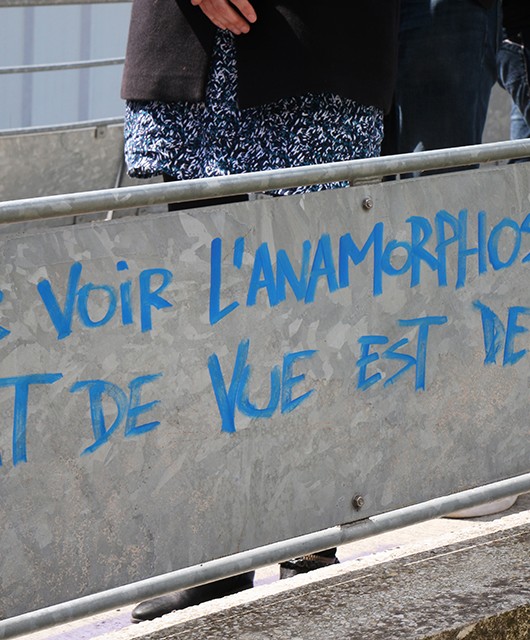 VOIR L'ANAMORPHOS
T DE VUE EST DE